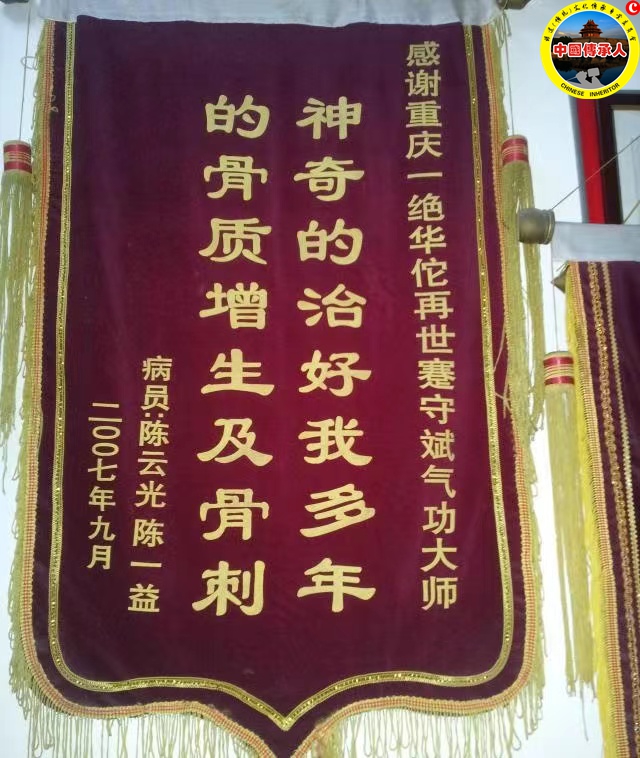 感谢重庆一绝华佗再世蹇守斌气功大师
神奇的治好我多年
的骨质增生及骨刺
病员:陈云光 陈一益
二〇〇七年.九月
中國傳承人
CHINESE INHERITOR
C